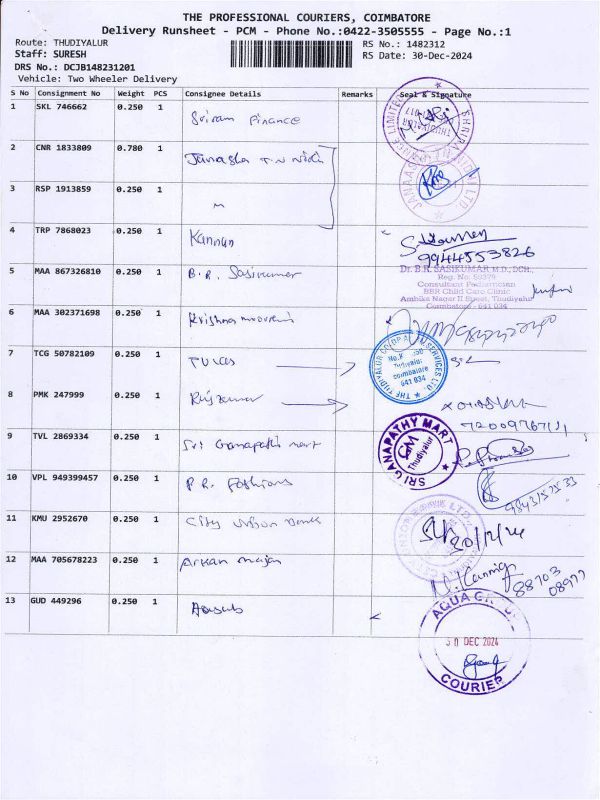 THE PROFESSIONAL COURIERS, COIMBATORE
Delivery Runsheet - PCM - Phone No.:0422-3505555 - Page No.:1
Route: THUDIYALUR
RS No.: 1482312
Staff: SURESH
RS Date: 30-Dec-2024
DRS No.: DCJB148231201
Vehicle: Two Wheeler Delivery
S No Consignment No Weight PCS Consignee Details Remarks Seal & Signature
1 SKL 746662 0.250 1 Sriram Finance
2 CNR 1833809 0.780 1
3 RSP 1913859 0.250 1 "
4 TRP 7868023 0.250 1 Kannan
9944553826
5 MAA 867326810 0.250 1 B.R. Sasikumar
Dr. B.R. SASIKUMAR M.D., DCH.,
Reg. No: 58379
Consultant Pediatrician
BBR Child Care Clinic
Ambika Nagar II Street, Thudiyalur
Coimbatore - 641 034
6 MAA 302371698 0.250 1 Krishnamoorthi
7 TCG 50782109 0.250 1 TUCAS
Thudiyalur
coimbatore
641 034
8 PMK 247999 0.250 1 Rajkumar
9 TVL 2869334 0.250 1 Sri Ganapathi mart
SRI GANAPATHY MART
GM
Thudiyalur
10 VPL 949399457 0.250 1 P.R. Fashions
11 KMU 2952670 0.250 1 City Union Bank
30/12/24
12 MAA 705678223 0.250 1
88703
08977
13 GUD 449296 0.250 1
AQUA GROUP
30 DEC 2024
COURIER